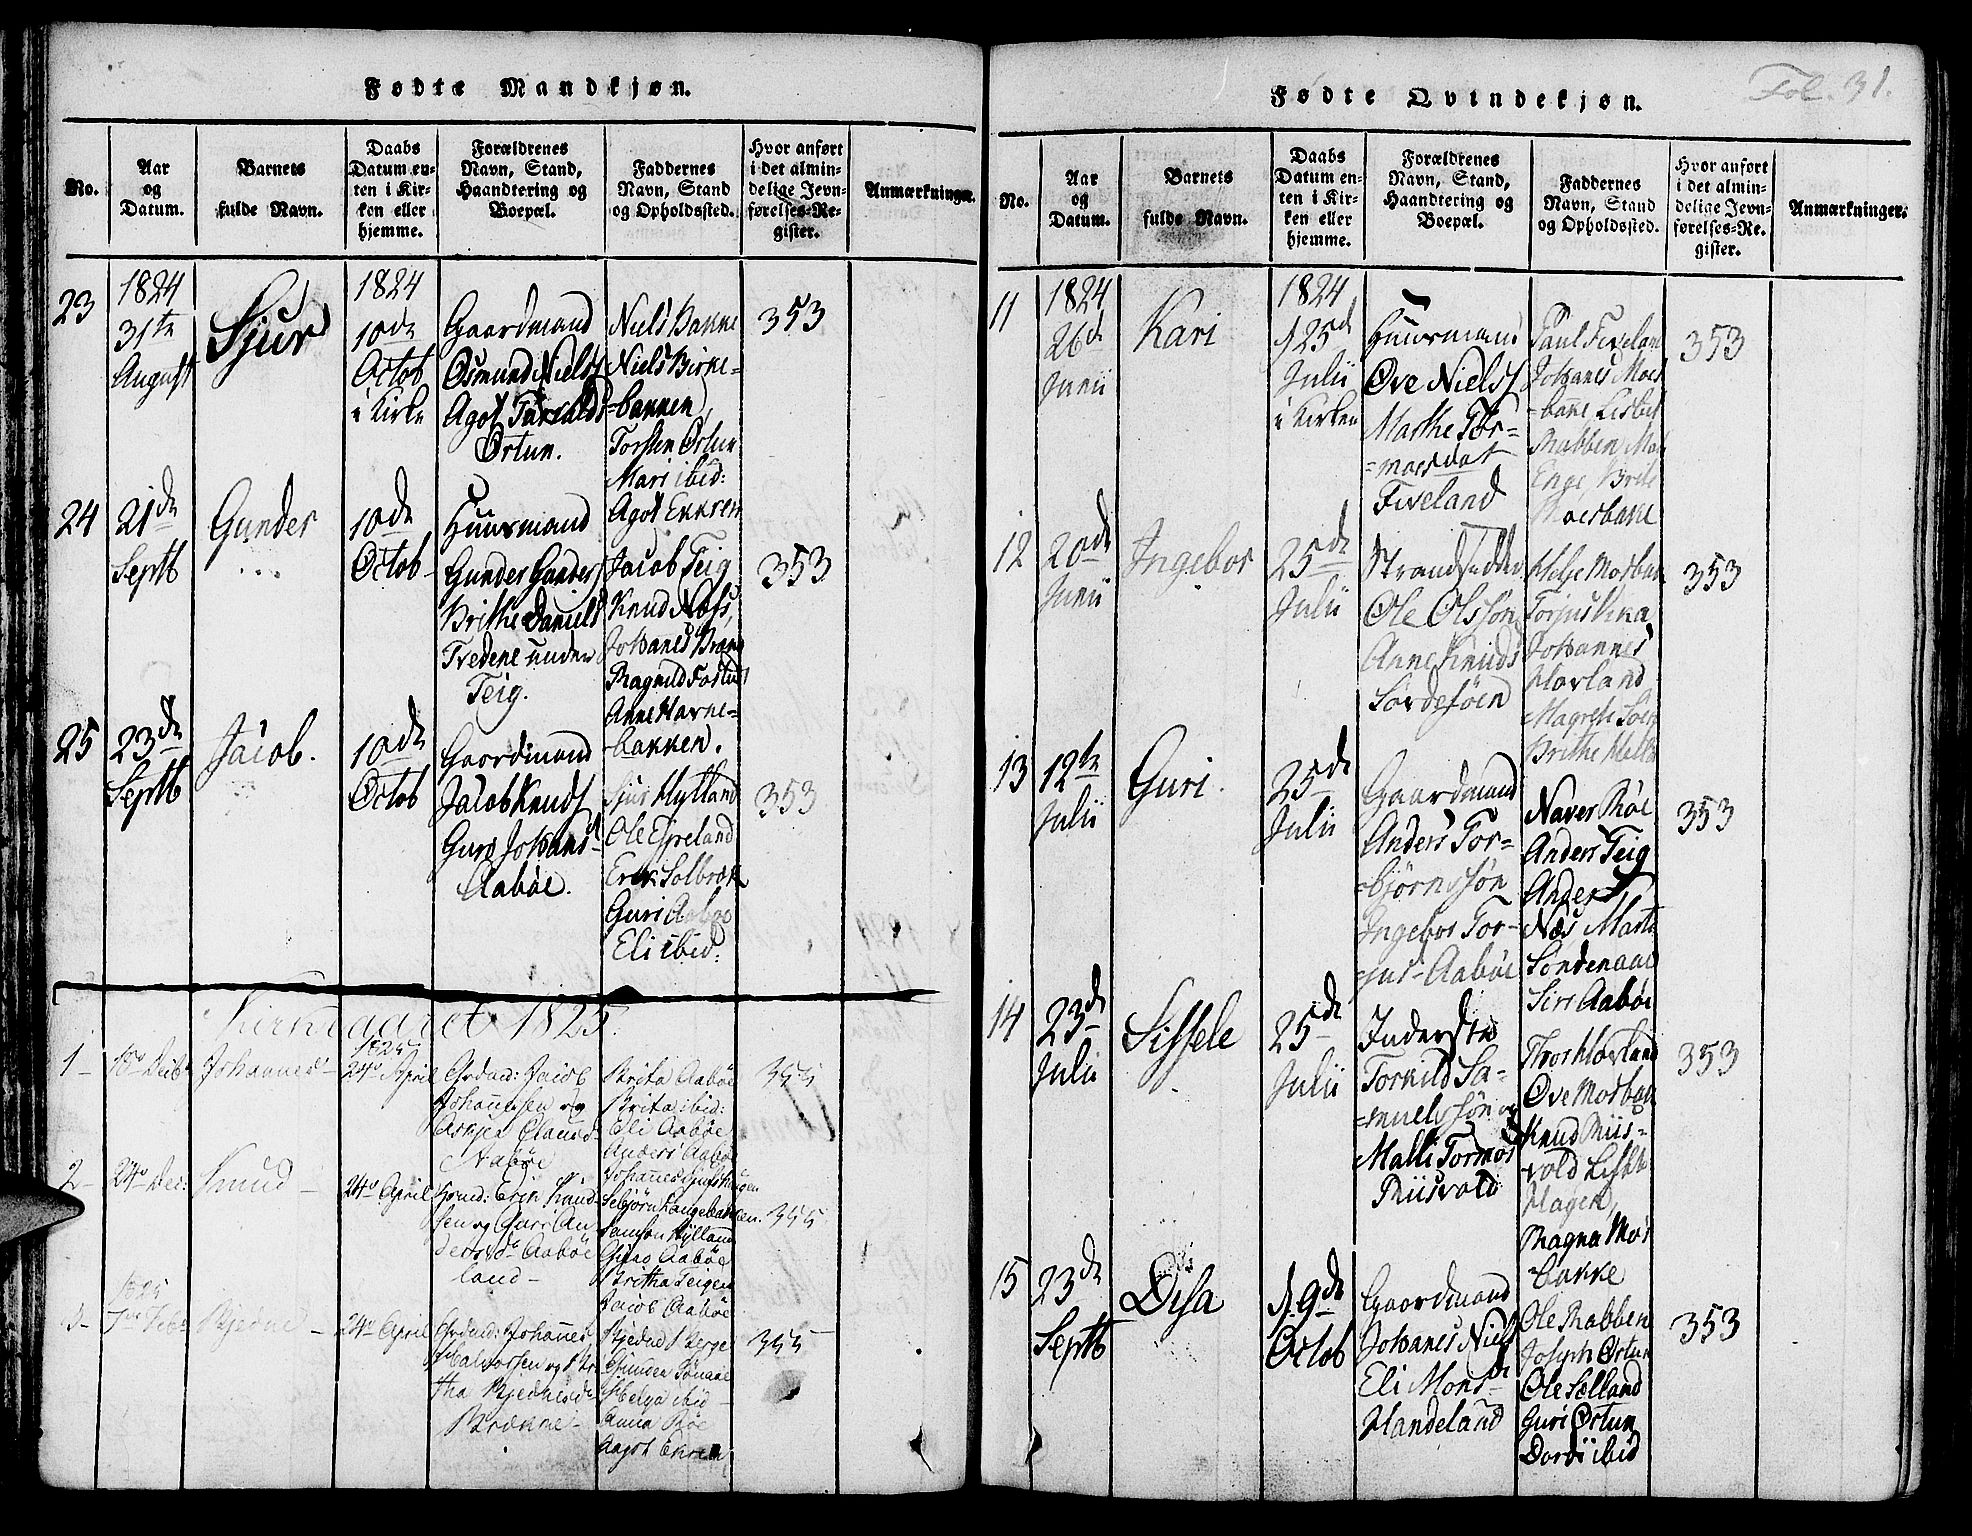 Fødte Mandkjøn.
No.
Aar
og
Datum.
Barnets
fulde Navn.
Daabs
Datum en-
ten i Kir-
ken eller
hjemme.
Forældrenes
Navn, Stand,
Haandtering og
Boepæl.
Faddernes
Navn, Stand
og Opholdssted.
Hvor anført
i det almin-
delige Jevn-
førelses-Re-
gister.
Anmærkninger.
23
1824
31te
August
Sjur
1824
10de
Octob
i Kirke
Gaardmand
Osmund Niels
Agot
Ørtun.
Niels Bakke
Niels Birke-
-bakken,
Torsten Ørtun
Mari ibid:
Agot Ekkren
353
24
21de
Septb
Gunder
10de
Octob
Huusmand
Gunder Gunders
Brithe Daniels
Tvedene under
Teig.
Jacob Teig
Knud Næss,
Johanes
Ragnild
Anne Havne-
-bakken.
353
25
23de
Septb
Jacob.
10de
Octob
Gaardmand
Jacob Knuds
Guri Johans
Aabøe.
Sjur Hylland
Ole Eireland
Erik Solbrek
Guri Aabøe
Eli ibid:
353
Kirkeaaret 1825.
1
18de Decb
Johannes
1825
24de April
Grdmd: Jacob
Johannesen og
Aabøe
Brita Aabøe
Brita ibid:
Eli Aabøe
Anders Aabøe
355
2
24de Dec:
Knud
24de April
Grmd: Erik Knud-
sen og Guri An-
dersd. Aabøe
land
Sebjörn Langebakken.
Samson Hylland
Guro Aabøe
Britha Teigen
Jacob Aabøe
355
3
1825
7de Feb
24de April
Grdmd: Johannes
Halvorsen og Bri-
tha
Gunder Sönaae
Helga ibid
Anna Røe
Aagot Ekren
355
Fødte Qvindekjøn.
Fol. 31.
No.
Aar
og
Datum.
Barnets
fulde Navn.
Daabs
Datum en-
ten i Kir-
ken eller
hjemme.
Forældrenes
Navn, Stand,
Haandtering og
Boepæl.
Faddernes
Navn, Stand
og Opholdssted.
Hvor anført
i det almin-
delige Jevn-
førelses-Re-
gister.
Anmærkninger.
11
1824
26de
Junii
Kari
1824
25de
Julii
i Kirken
Huusmand
Ove Niels
Marthe Tor-
-moesdat
Fiveland
Paul Fivelan
Johanes Moes
-bakke Lisbet
Rabben
Enge Brite
Moesbake
353
12
20de
Junii
Ingebor
25de
Julii
Strandsidder
Ole Olssøn
Anne Knuds
Sørdesøen
Helje Mosbak
Johannes
Hovland
Magrete
Brithe
353
13
12te
Julii
Guri.
25de
Julii
Gaardmand
Anders Tor-
-björnssøn
Ingebor Tor-
-jus- Aabøe
Naver Røe
Anders Teig
Anders
Næs Marte
Søndenaae
Siri Aabøe
353
14
23de
Julii
Sissele
25de
Julii
Inderste
Torkild Sa-
-muelssøn og
Malli Tormos
Riisvold
Thor Hovland
Ove Mosbak
Knud Riis-
vold Lisbet
Hagen,
Magna Mos
-bakke
353
15
23de
Septb
Disa
19de
Octob
Gaardmand
Johanes Niels
Eli Mons
Handeland
Ole Rabben
Joseph Ørtun
Ole Sælland
Guri Ørtun
Dordi ibid
353